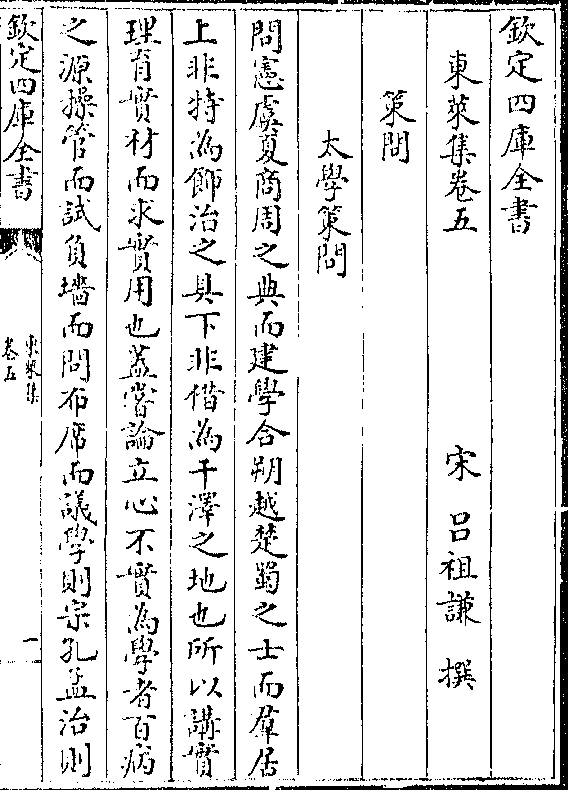 欽定四庫全書
東萊集卷五
宋 呂祖謙 撰
策問
太學策問
問憲虞夏商周之典而建學合朔越楚蜀之士而羣居
上非特為飾治之具下非借為干澤之地也所以講實
理育實材而求實用也蓋嘗論立心不實為學者百病
之源操管而試負墻而問布席而議學則宗孔孟治則
欽定四庫全書
東萊集
卷五
一